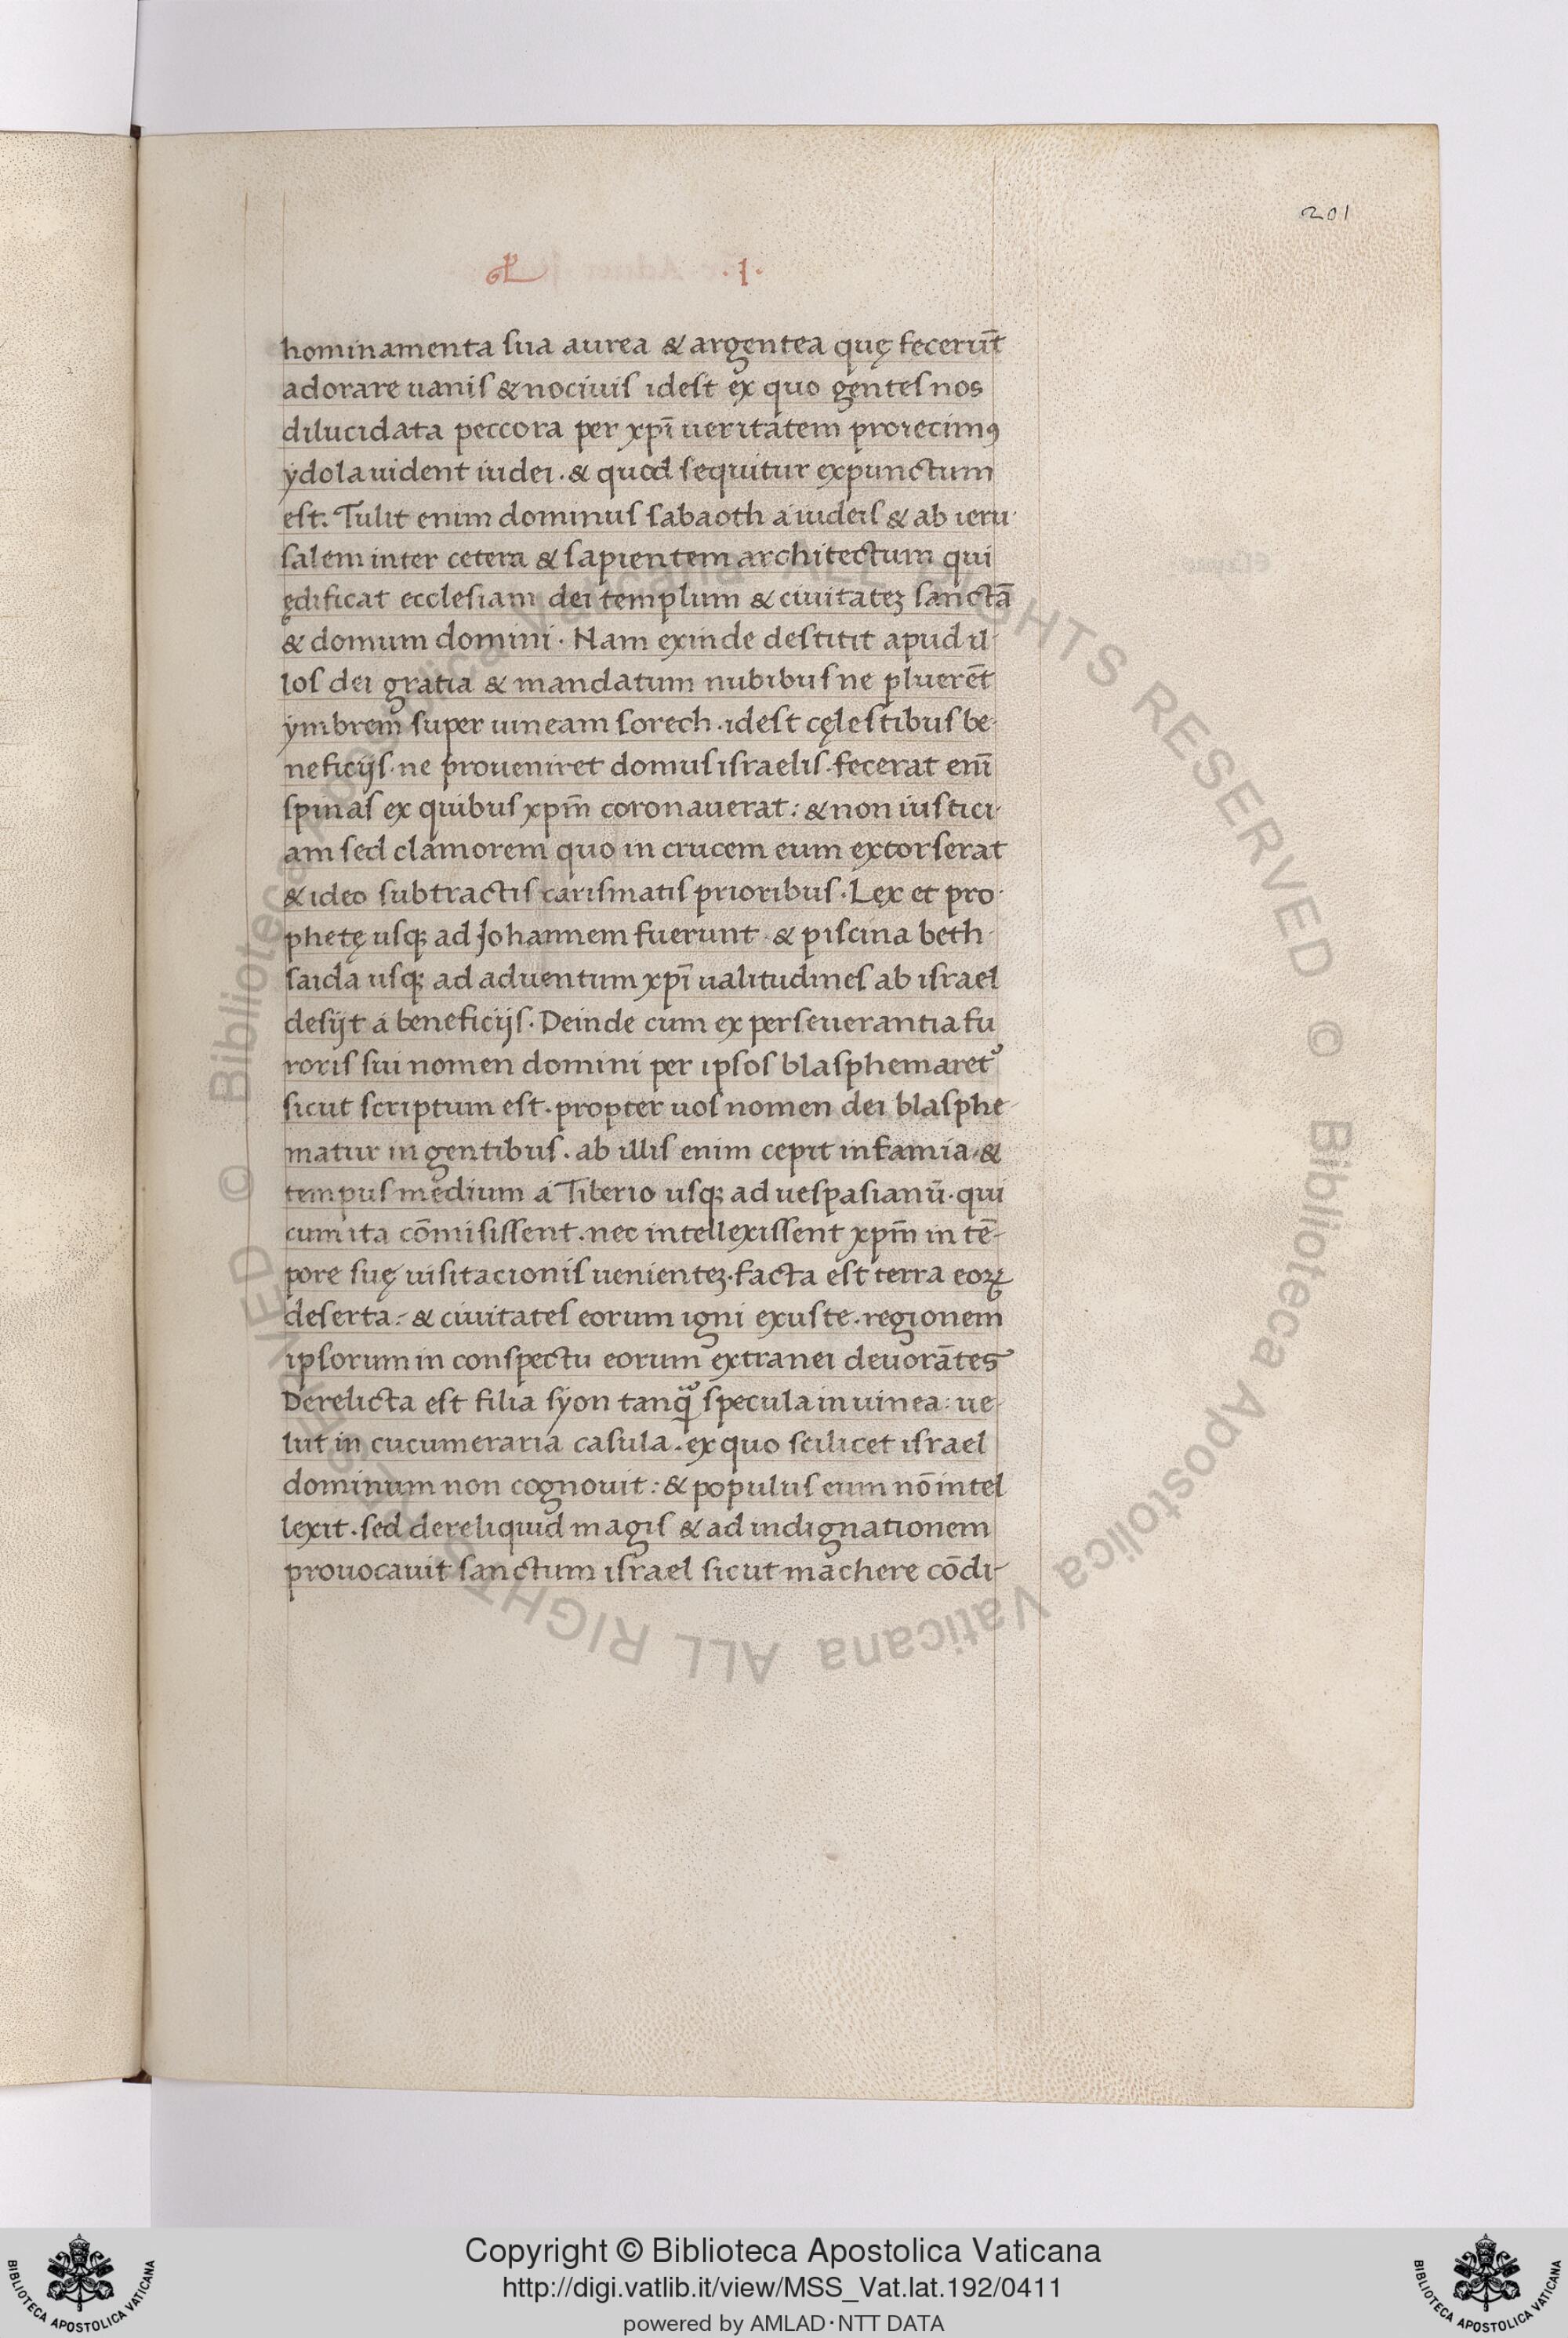 201
.I.
hominamenta sua aurea & argentea quę fecerūt
adorare uanis & nociuis idest ex quo gentes nos
dilucidata peccora per xpī ueritatem proiecimꝰ
ydola uident iudei. & quod sequitur expunctum
est. Tulit enim dominus sabaoth a iudeis & ab ieru-
salem inter cetera & sapientem architectum qui
ędificat ecclesiam dei templum & ciuitateꝫ sanctā
& domum domini. Nam exinde destitit apud il-
los dei gratia & mandatum nubibus ne pluerēt
ymbrem super uineam sorech. idest cęlestibus be-
neficijs. ne proueniret domus israelis. fecerat enī
spinas ex quibus xpm̄ coronauerat: & non iustici-
am sed clamorem quo in crucem eum extorserat
& ideo subtractis carismatis prioribus. Lex et pro-
phetę usqꝫ ad Johannem fuerunt. & piscina beth-
saida usqꝫ ad aduentum xpī ualitudines ab israel
desijt a beneficijs. Deinde cum ex perseuerantia fu
roris sui nomen domini per ipsos blasphemaret᷑
sicut scriptum est. propter uos nomen dei blasphe-
matur in gentibus. ab illis enim cepit infamia. &
tempus medium a Tiberio usqꝫ ad uespasianū. qui
cum ita cōmisissent. nec intellexissent xpm̄ in tē-
pore suę uisitacionis uenienteꝫ. facta est terra eoꝝ
deserta: & ciuitates eorum igni exuste. regionem
ipsorum in conspectu eorum extranei deuorātes
Derelicta est filia syon tanqͣ̄ specula in uinea: ue-
lut in cucumeraria casula. ex quo scilicet israel
dominum non cognouit: & populus eum nō intel
lexit. sed dereliquid magis & ad indignationem
prouocauit sanctum israel sicut machere cōdi-
Copyright © Biblioteca Apostolica Vaticana
http://digi.vatlib.it/view/MSS_Vat.lat.192/0411
powered by AMLAD·NTT DATA
BIBLIOTECA APOSTOLICA VATICANA
BIBLIOTECA APOSTOLICA VATICANA
© Biblioteca Apostolica Vaticana ALL RIGHTS RESERVED © Biblioteca Apostolica Vaticana ALL RIGHTS RESERVED